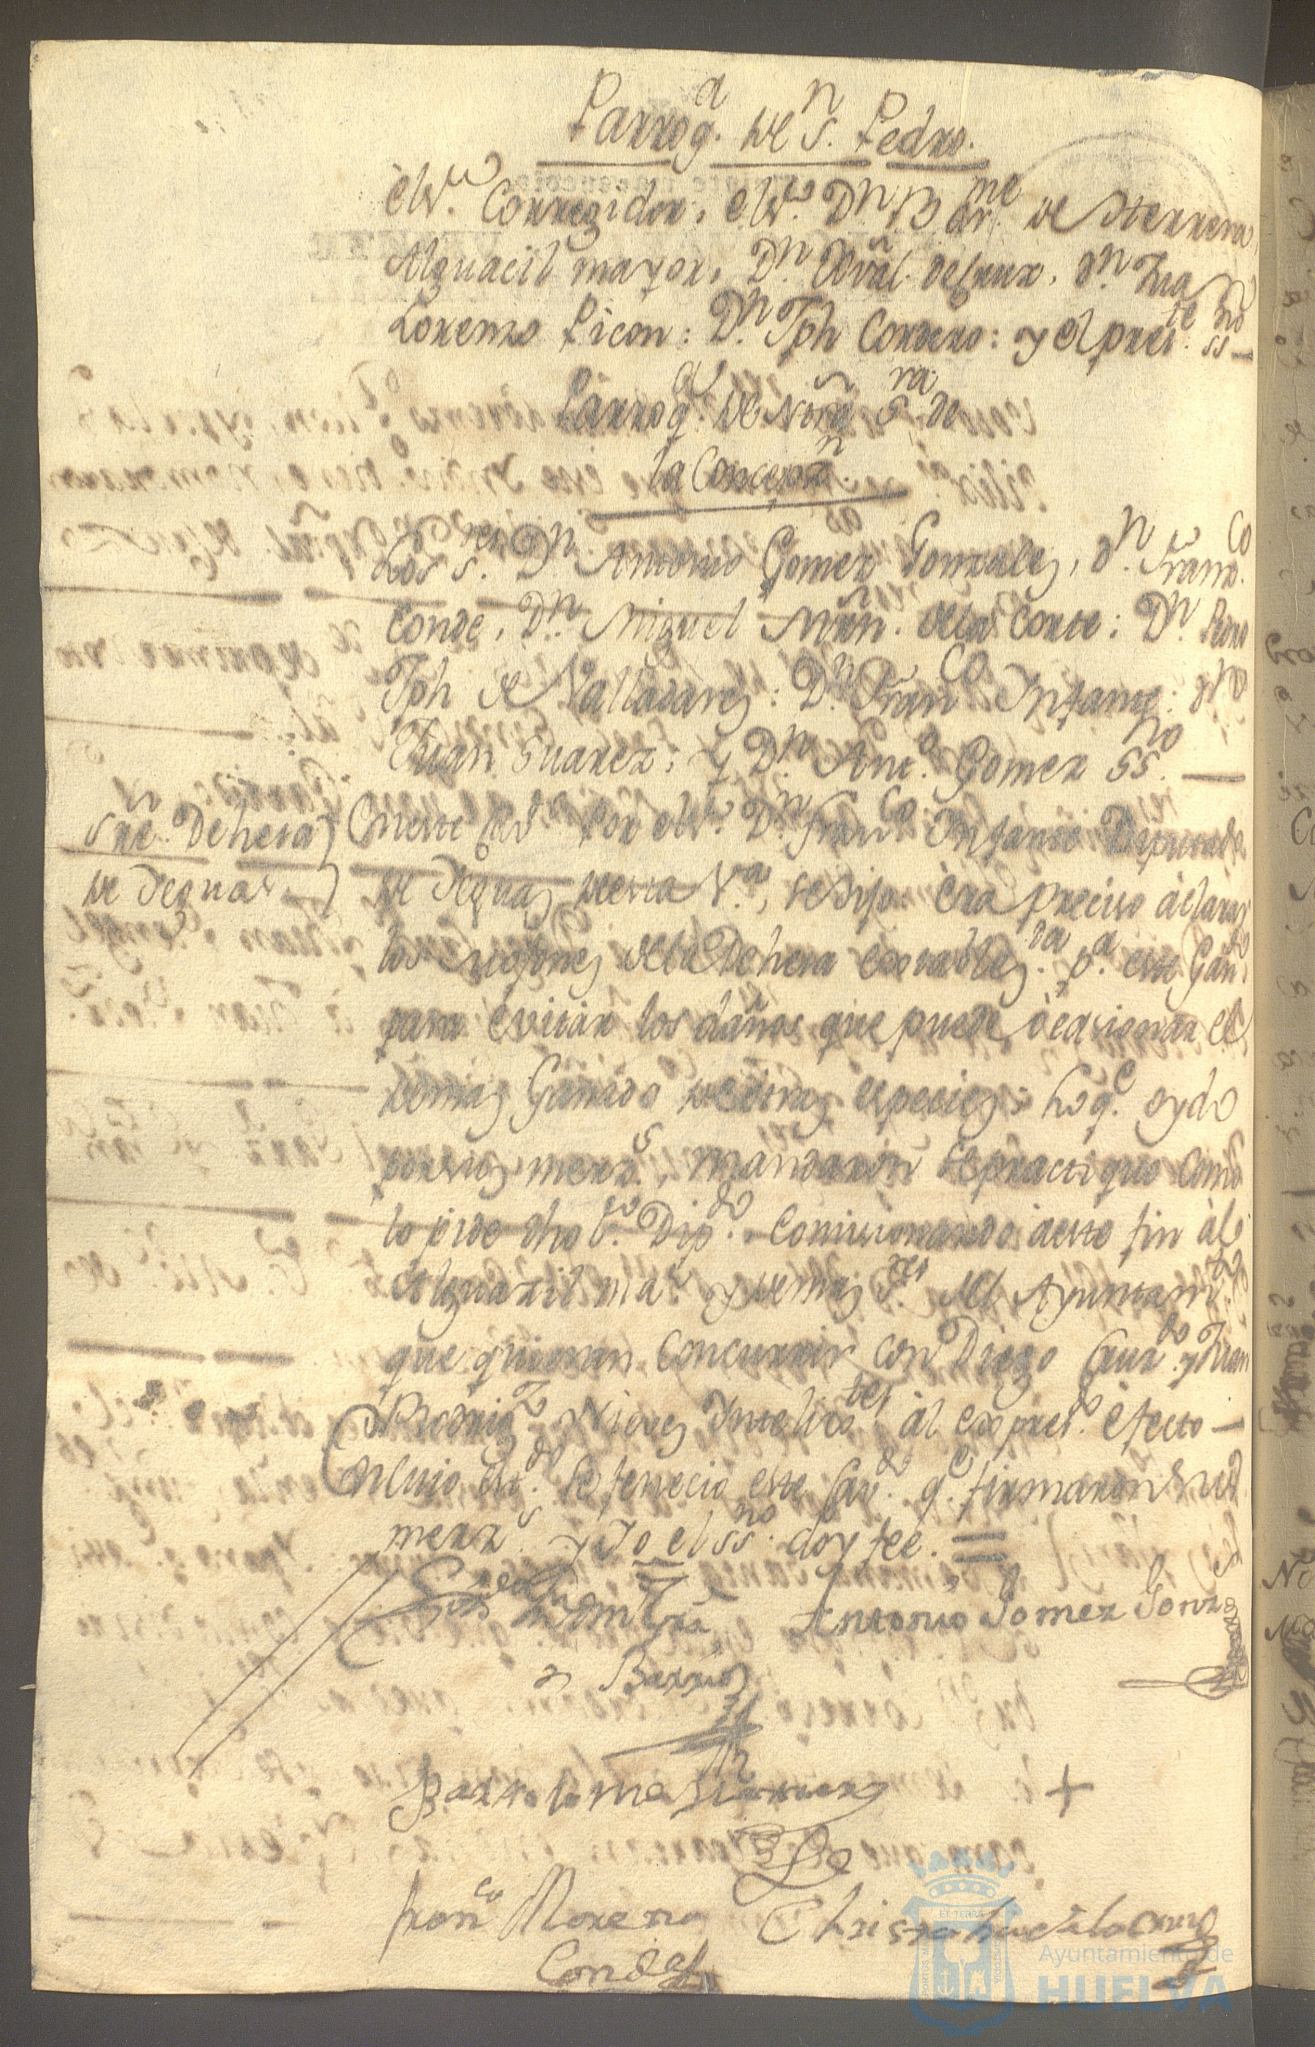 Parroq.ª de S.n Pedro.
el s.or Corregidor, el s.or D.n Bar.me de Herrera
Alguacil mayor, D.n Xval de Cruz, d.n Jua
Lorenzo Picon: D.n Jph Cordero: y el pres.te ss.no
Parroq.ª de Nrã S.ra de
la Concepz.n
Los S.res D.n Antonio Gomez Gonzalez, d.n Franco.co
Conde, D.n Miguel Mrñ. de la Corte: D.n Pedro
Jph de Valladares: D.n Fran.co Infante: d.n
Juan Suarez: y D.n Ant.o Gomez ss.no
Sre. Dehesa
de Yeguas
En este Cav.do por el s.or D.n Fran.co Infante Diputado
de Yeguas de esta V.a, se dijo: era preciso aclarar
los mojones de la Dehesa establez.da p.a este Gan.do
para evitar los daños que puede ocasionar el
demas Ganado de otras especies: Lo q.e oydo
por sus merz.s, mandaron se practique como
lo pide dho s.or Dip.do Comisionando a este fin al
Alguazil ma.r y demas S.res del Ayuntam.to
que quieran concurrir con Diego Cruz.do y Juan
Rodrig.z Nieves Intelix.tes al expres.o efecto
En cuio est.do se fenecio este Cav.do q.e firmaron sus
merz.s y Yo el ss.no doy fee.
Antonio Gomez Gonz
Barrios
Bartolome Herrera
Fran.co Moreno
Conde
Christobal de la Cruz
Ayuntamiento de
HUELVA